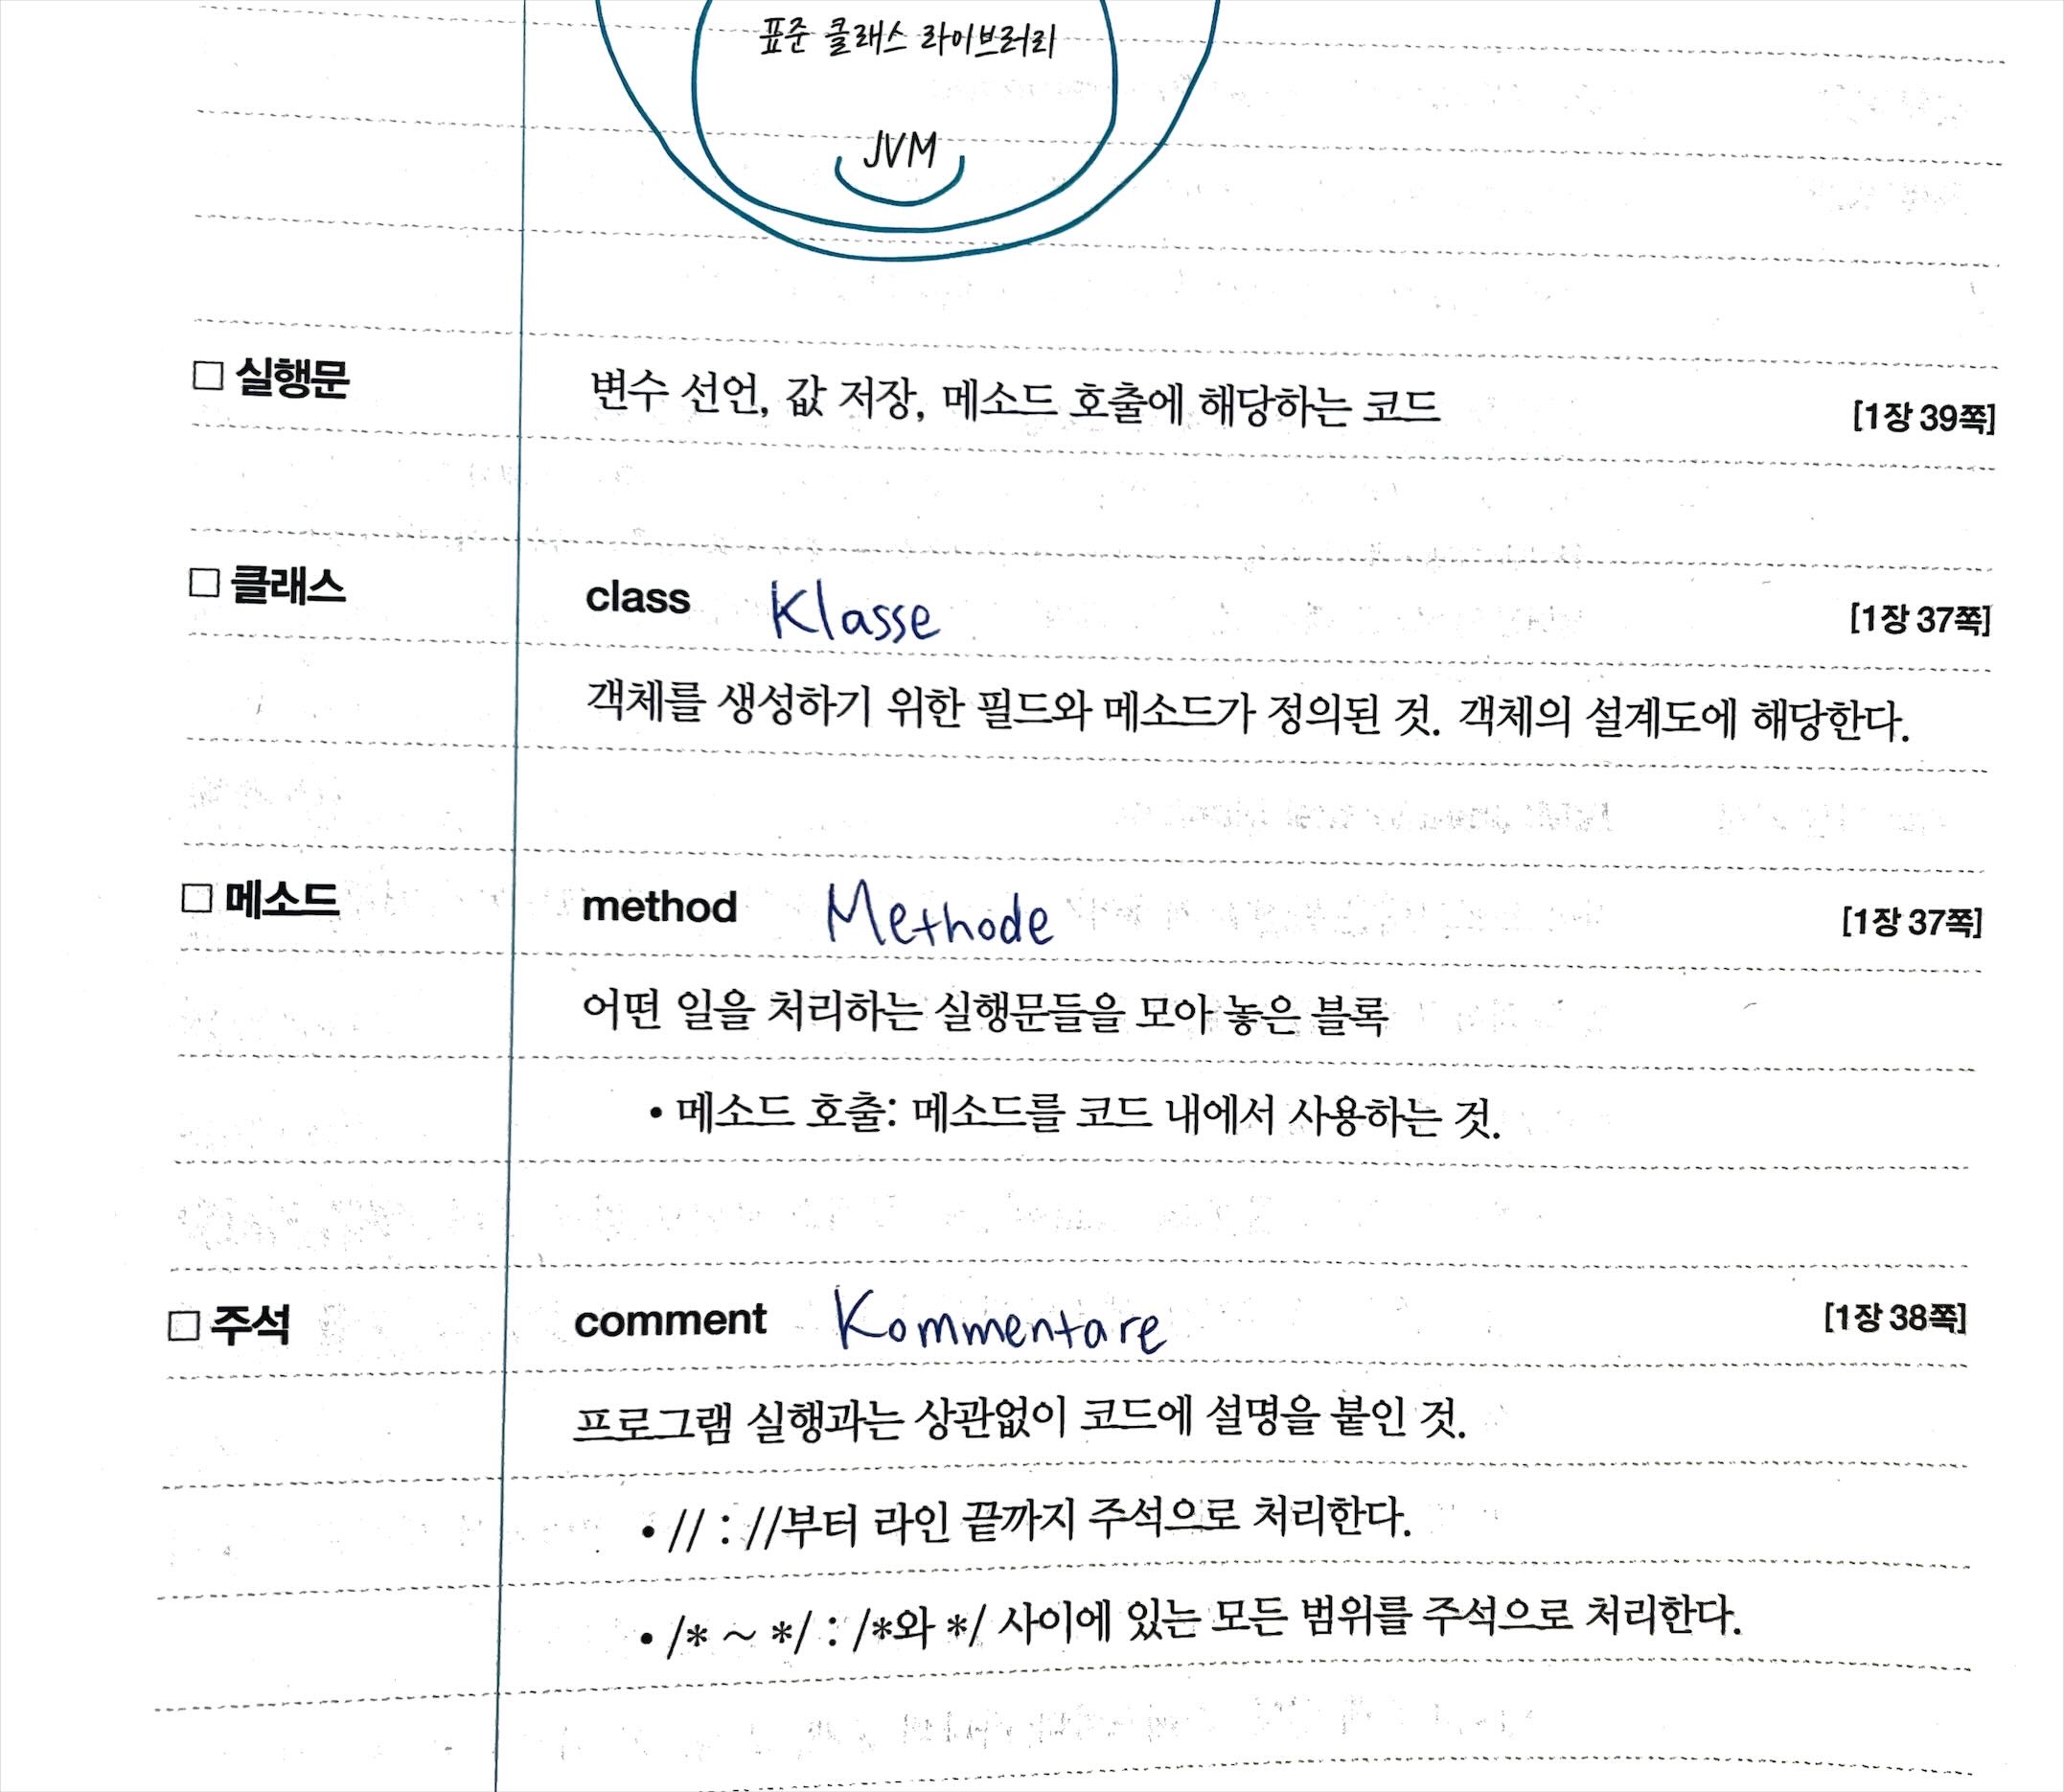 표준 클래스 라이브러리
JVM
□ 실행문 변수 선언, 값 저장, 메소드 호출에 해당하는 코드 [1장 39쪽]
□ 클래스 class Klasse [1장 37쪽]
객체를 생성하기 위한 필드와 메소드가 정의된 것. 객체의 설계도에 해당한다.
□ 메소드 method Methode [1장 37쪽]
어떤 일을 처리하는 실행문들을 모아 놓은 블록
• 메소드 호출: 메소드를 코드 내에서 사용하는 것.
□ 주석 comment Kommentare [1장 38쪽]
프로그램 실행과는 상관없이 코드에 설명을 붙인 것.
• // : //부터 라인 끝까지 주석으로 처리한다.
• /* ~ */ : /*와 */ 사이에 있는 모든 범위를 주석으로 처리한다.